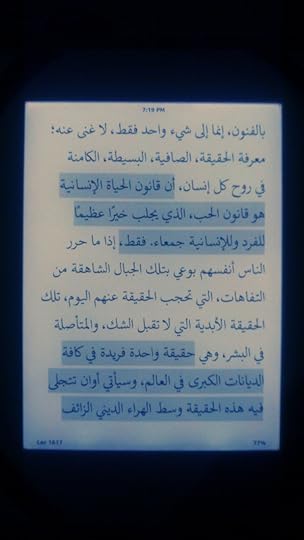 7:19 PM
بالفنون، إنما إلى شيء واحد فقط، لا غنى عنه؛
معرفة الحقيقة، الصافية، البسيطة، الكامنة
في روح كل إنسان، أن قانون الحياة الإنسانية
هو قانون الحب، الذي يجلب خيرًا عظيمًا
للفرد وللإنسانية جمعاء. فقط، إذا ما حرر
الناس أنفسهم بوعي بتلك الجبال الشاهقة من
التفاهات، التي تحجب الحقيقة عنهم اليوم، تلك
الحقيقة الأبدية التي لا تقبل الشك، والمتأصلة
في البشر، وهي حقيقة واحدة فريدة في كافة
الديانات الكبرى في العالم، وسيأتي أوان تتجلى
فيه هذه الحقيقة وسط الهراء الديني الزائف
Loc 1617 77%